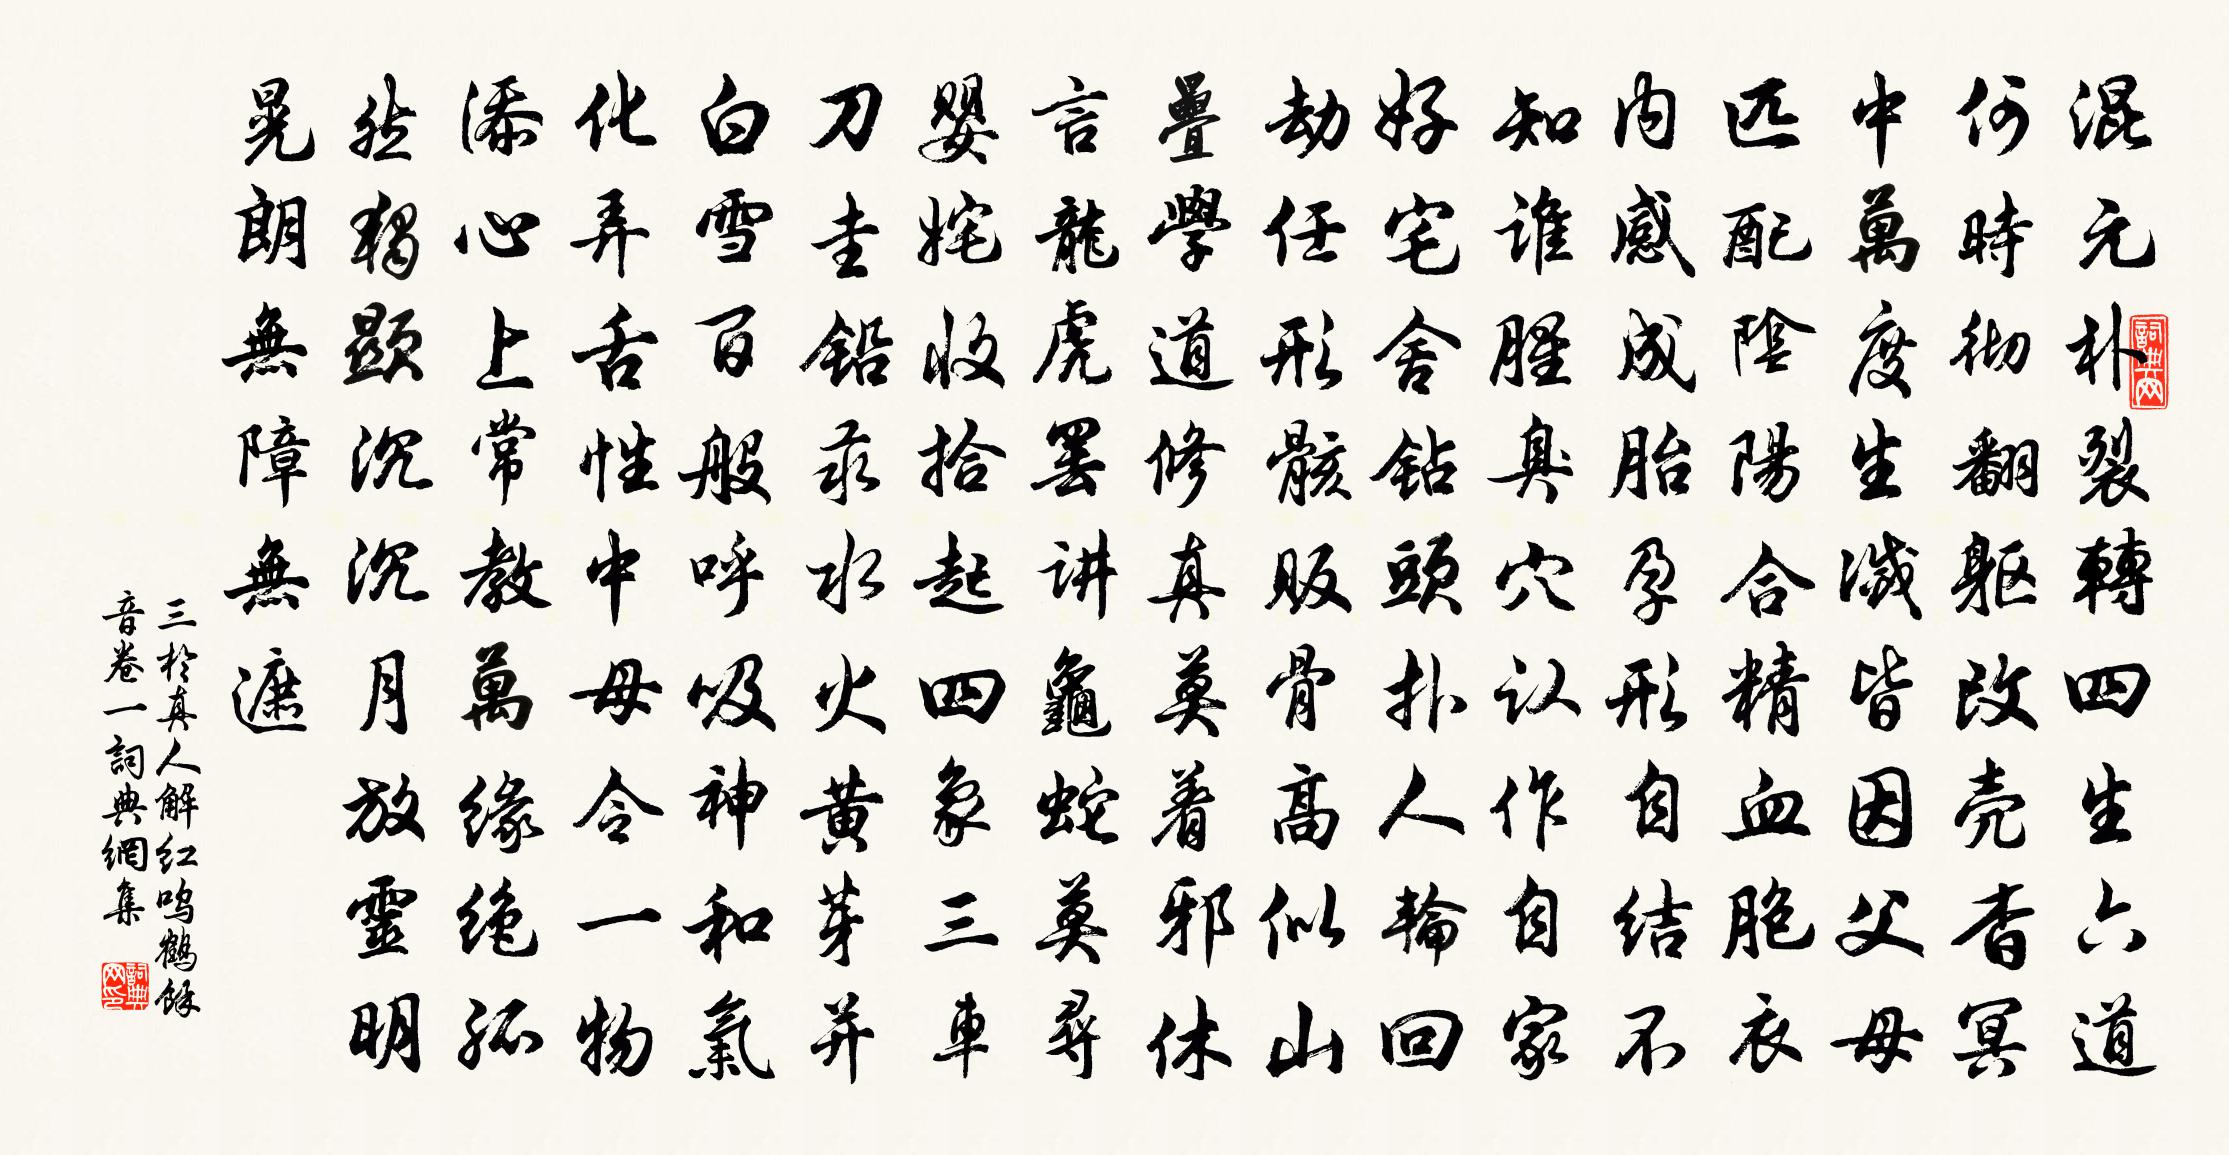 混元朴裂轉四生六道
何時彻翻軀改壳杳冥
中萬度生滅皆因父母
匹配陰陽合精血胞衣
内感成胎孕形自结不
知谁腥臭穴认作自家
好宅舍钻頭扑人輪回
劫任形骸贩骨高似山
疊學道修真莫着邪休
言龍虎罢讲龜蛇莫尋
嬰姹收拾起四象三車
刀圭铅汞水火黄芽并
白雪百般呼吸神和氣
化弄舌性中毋令一物
添心上常教萬缘绝孤
然獨顯沉沉月放靈明
晃朗無障無遮
三於真人解红鸣鶴餘
音卷一詞典網集
詞典网
詞典网印